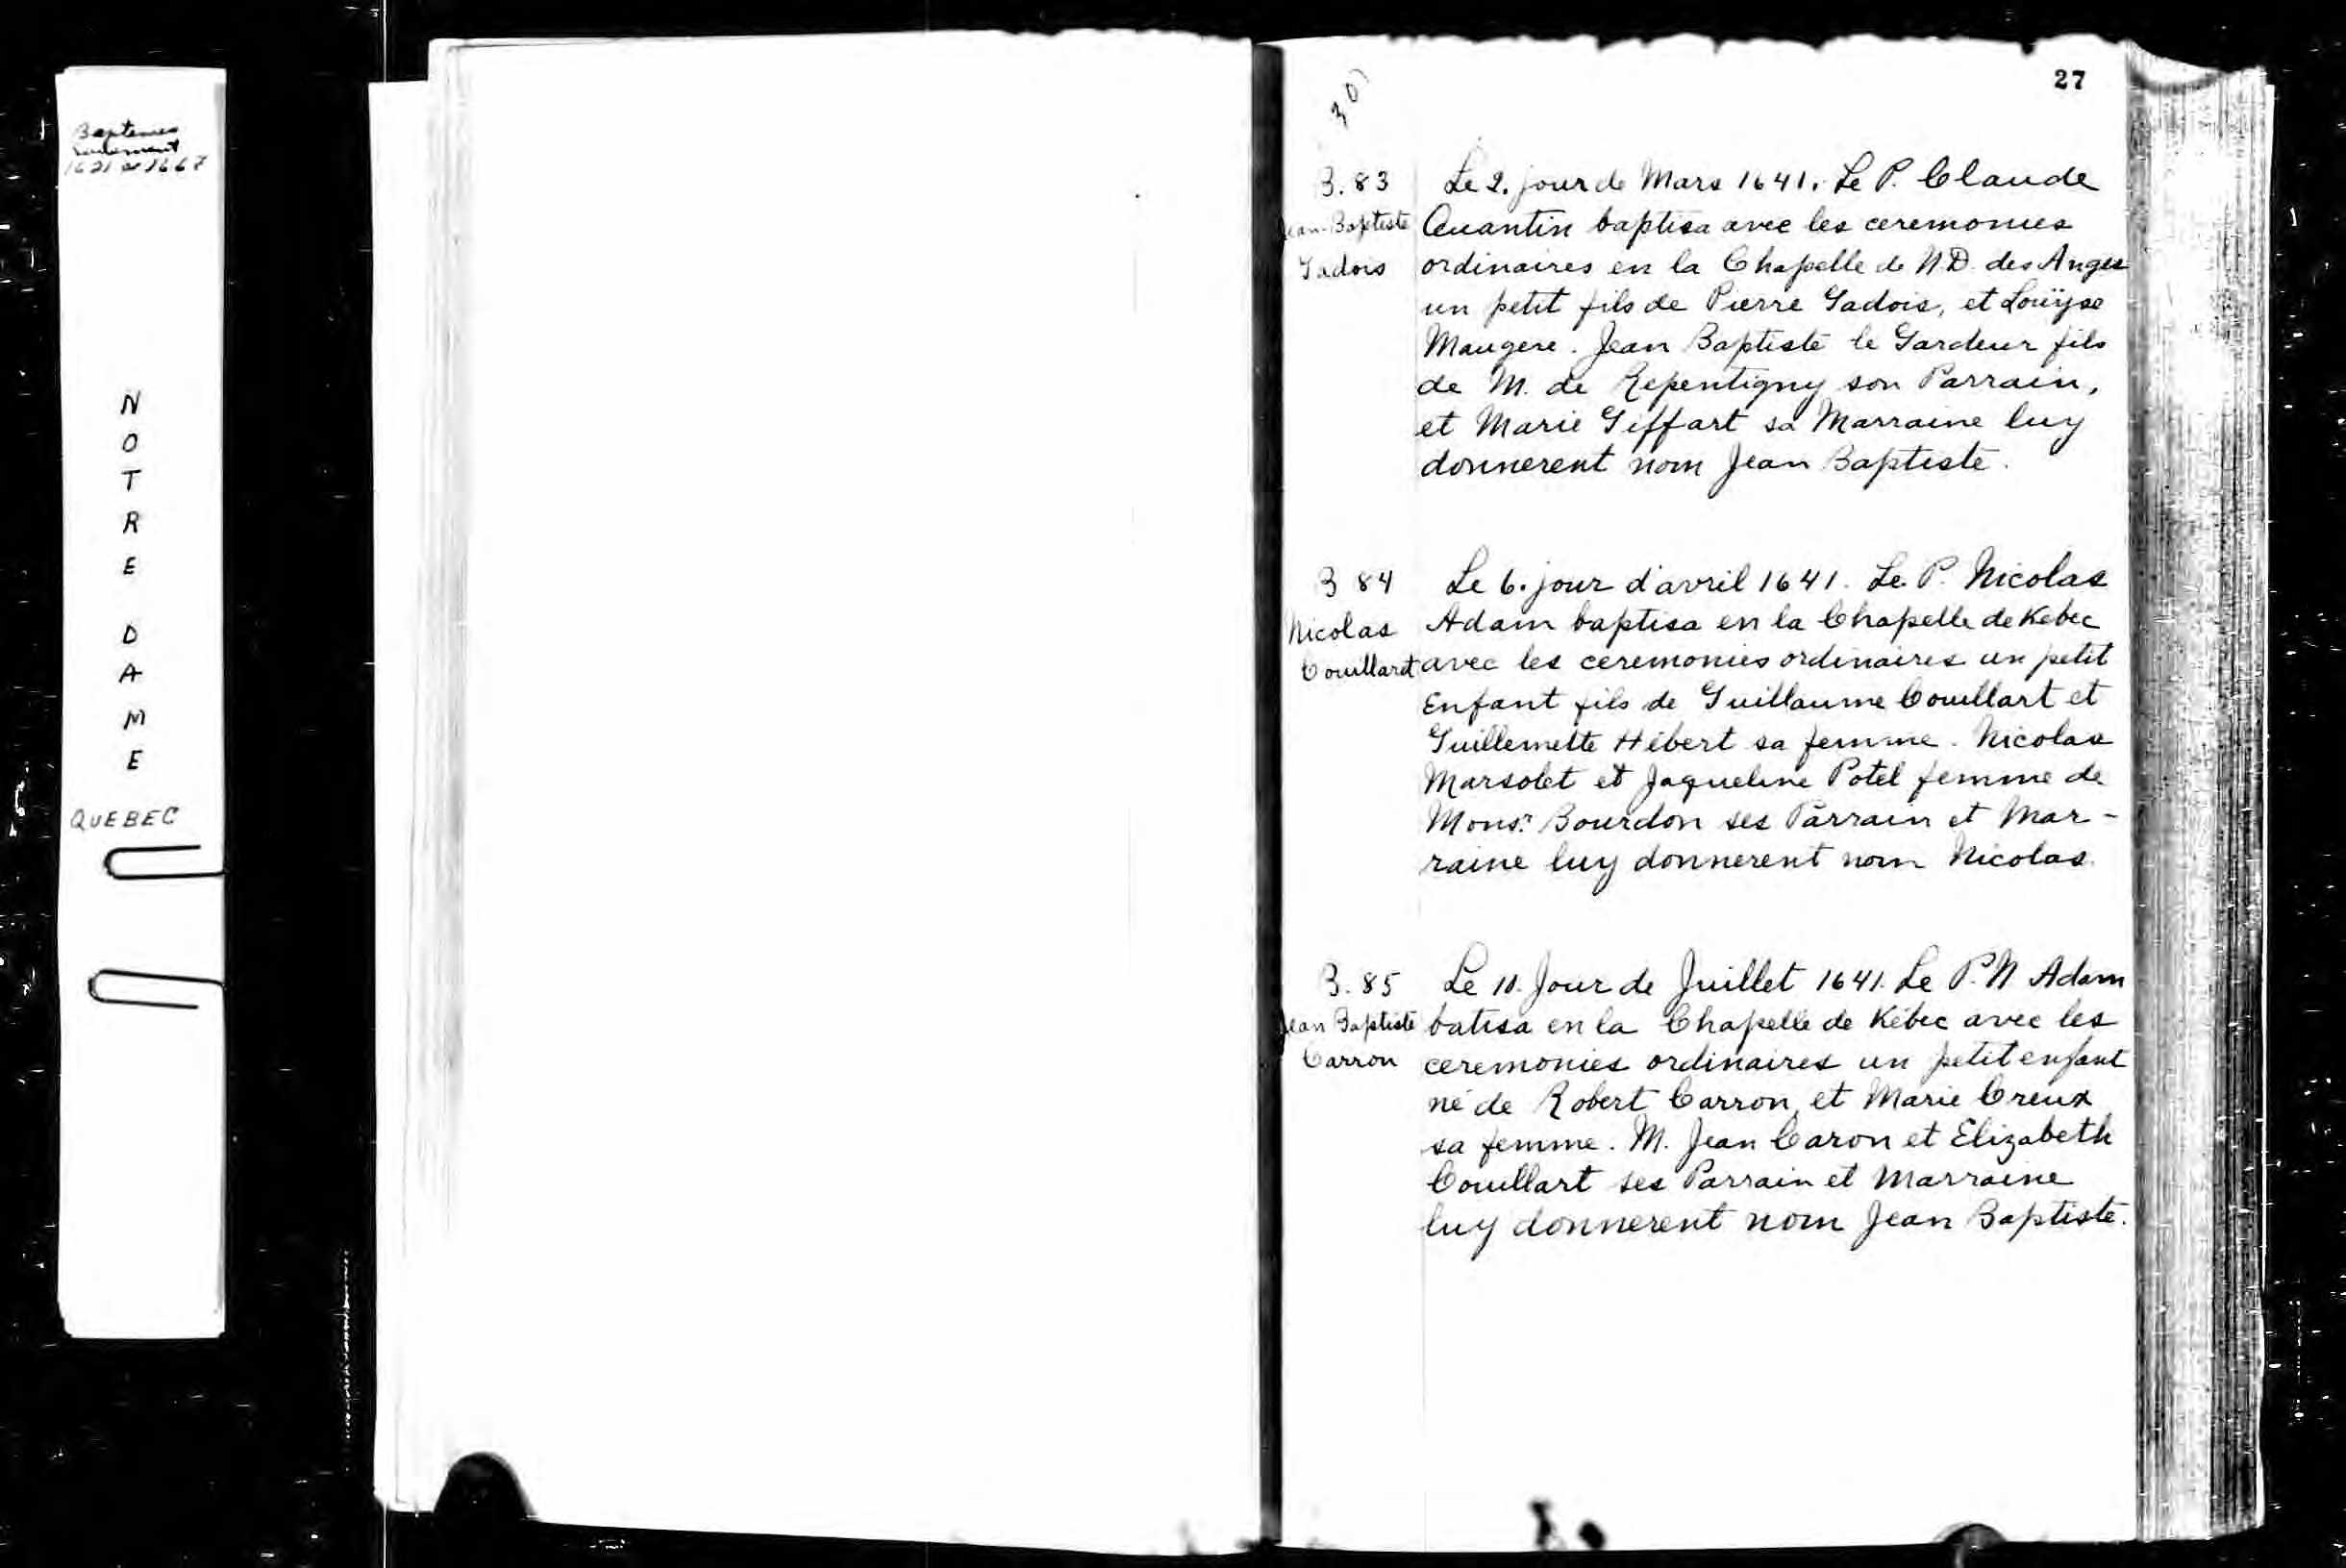 Baptemes
seulement
1621 à 1667
NOTRE
DAME
QUEBEC
27
B. 83
Jean-Baptiste
Gadois
Le 2. jour de Mars 1641. Le P. Claude
Quantin baptisa avec les ceremonies
ordinaires en la Chapelle de N.D. des Anges
un petit fils de Pierre Gadois, et Louÿse
Maugere. Jean Baptiste le Gardeur fils
de M. de Repentigny son Parrain,
et Marie Giffart sa Marraine luy
donnerent nom Jean Baptiste.
B 84
Nicolas
Couillard
Le 6. jour d'avril 1641. Le P. Nicolas
Adam baptisa en la Chapelle de Kebec
avec les ceremonies ordinaires un petit
Enfant fils de Guillaume Couillart et
Guillemette Hébert sa femme. Nicolas
Marsolet et Jaqueline Potel femme de
Monsr. Bourdon ses Parrain et Mar-
raine luy donnerent nom Nicolas.
B. 85
Jean Baptiste
Carron
Le 10. Jour de Juillet 1641. Le P. N Adam
batisa en la Chapelle de Kébec avec les
ceremonies ordinaires un petit enfant
né de Robert Carron, et Marie Creux
sa femme. M. Jean Caron et Elizabeth
Couillart ses Parrain et Marraine
luy donnerent nom Jean Baptiste.